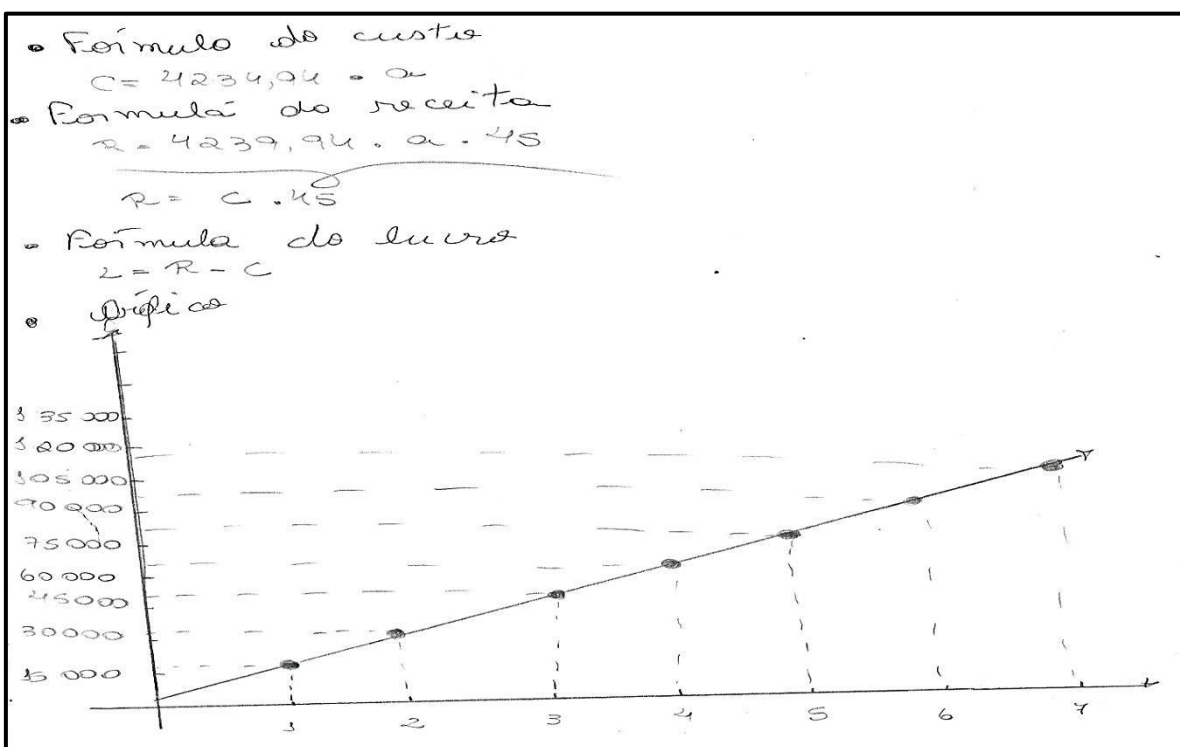 • Fórmula do custo
C = 4234,94 • a
• Formulá do receita
R = 4239,94 . a . 45
R = C . 45
• Fórmula do lucro
L = R - C
• Gráfico
135 000
120 000
105 000
90 000
75000
60 000
45000
30000
15 000
1 2 3 4 5 6 7